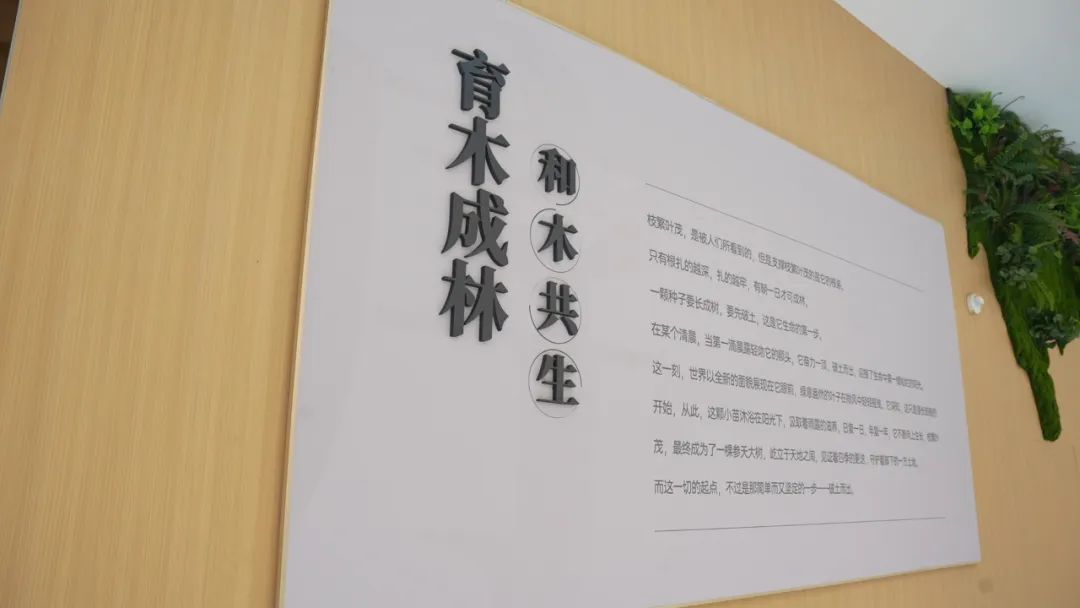 育木成林
和木共生
枝繁叶茂，是被人们所看到的，但是支撑枝繁叶茂的是它的根系。
只有根扎的越深，扎的越牢，有朝一日才可成林。
一颗种子要长成树，要先破土，这是它生命的第一步。
在某个清晨，当第一滴晨露轻吻它的额头，它奋力一顶，破土而出，迎接了生命中第一缕的阳光。
这一刻，世界以全新的面貌展现在它眼前，绿意盎然的叶子在微风中轻轻摇曳。它深知，这只是漫长旅程的
开始，从此，这颗小苗沐浴在阳光下，汲取着雨露的滋养，日复一日，年复一年，它不断向上生长，枝繁叶
茂，最终成为了一棵参天大树，屹立于天地之间，见证着四季的更迭，守护着脚下的一方土地。
而这一切的起点，不过是那简单而又坚定的一步——破土而出。